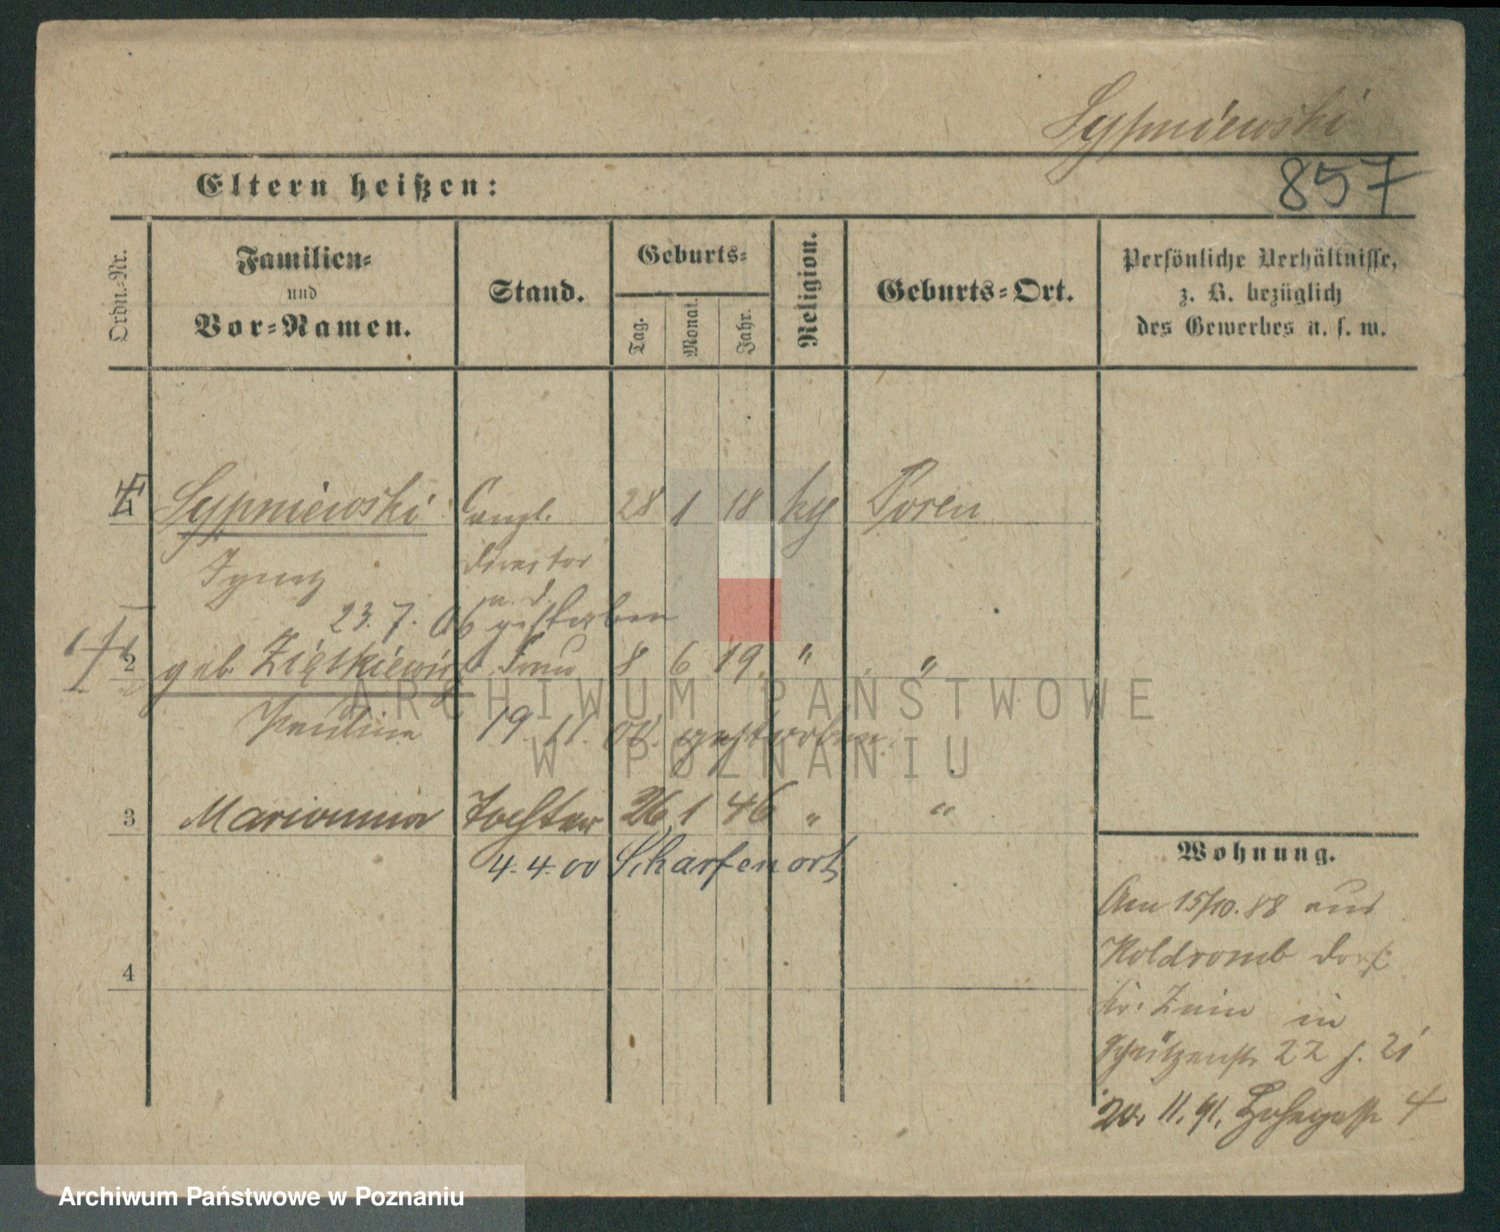 Sypniewski
857
Eltern heißen:
Ordn.-Nr.
Familien-
und
Vor-Namen.
Stand.
Geburts-
Tag.
Monat.
Jahr.
Religion.
Geburts-Ort.
Persönliche Verhältnisse,
z. B. bezüglich
des Gewerbes u. s. w.
Sypniewski Canzl. 28 1 18 Posen
Ignatz Director
a. d.
23. 7. 06 gestorben
2 geb. Frau 8 6 19 " "
Paulina 19. 11. gestorben.
3 Marianna Tochter 26 1 46 " "
4.4.00 Scharfenort
4
Wohnung.
Am 15/10. 88 aus
Dorf
Kr. Znin in
Schützenstr 22 21
11. 91. 4
ARCHIWUM PAŃSTWOWE
W POZNANIU
Archiwum Państwowe w Poznaniu